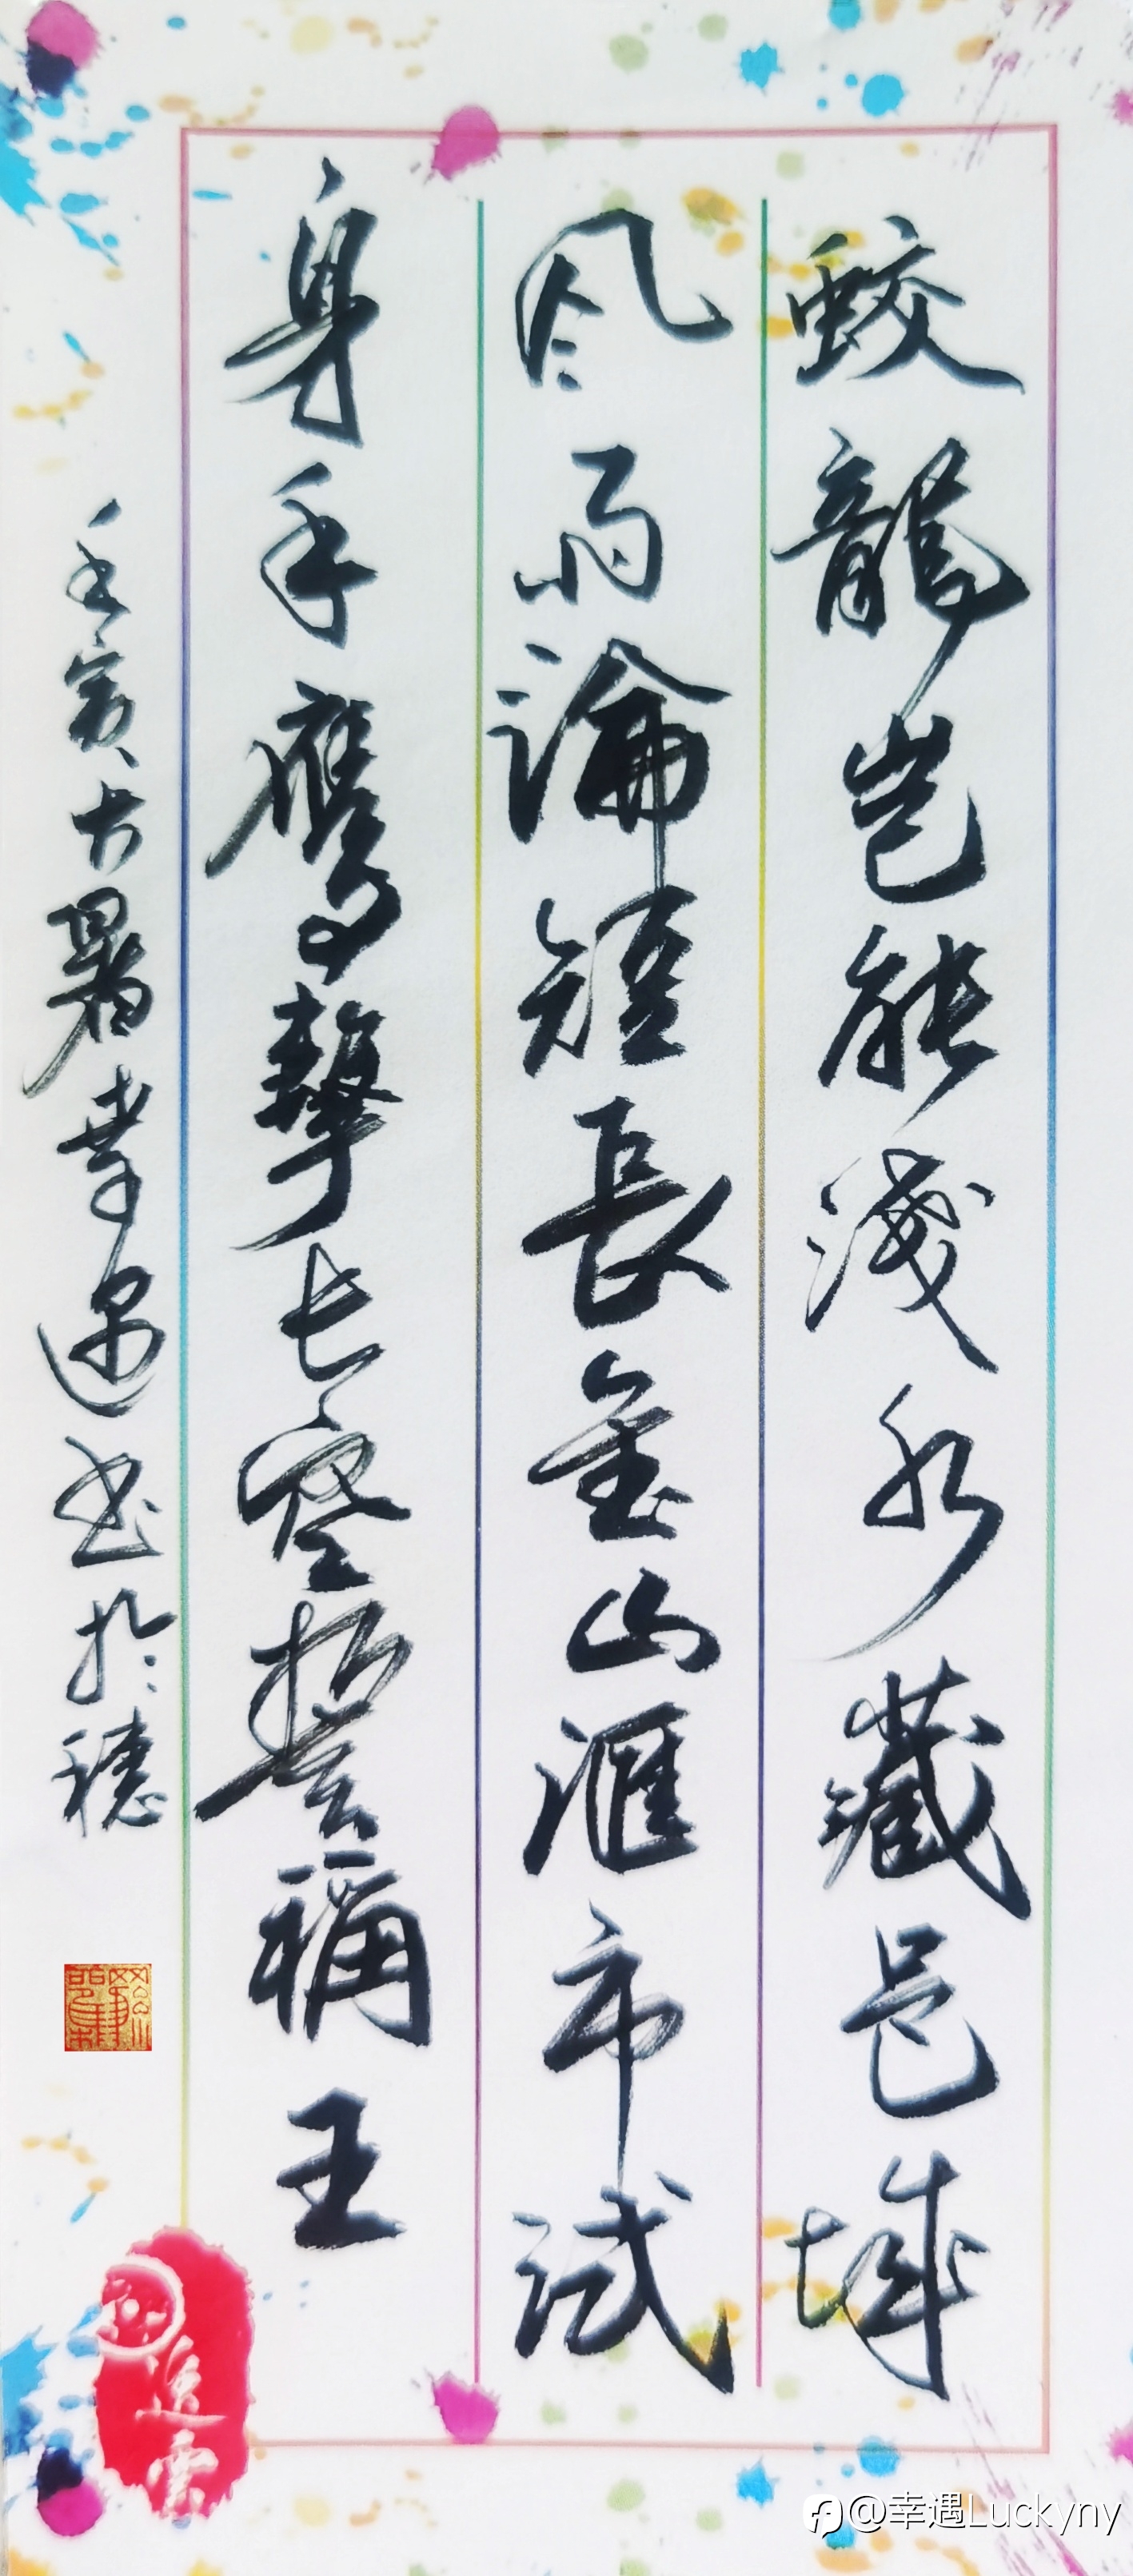 蛟龍岂能淺水藏邑城
风雨論短長金山滙市試
身手鹰擊長空誓稱王
壬寅大暑幸遇书於穗
追雲
@幸遇Luckyny